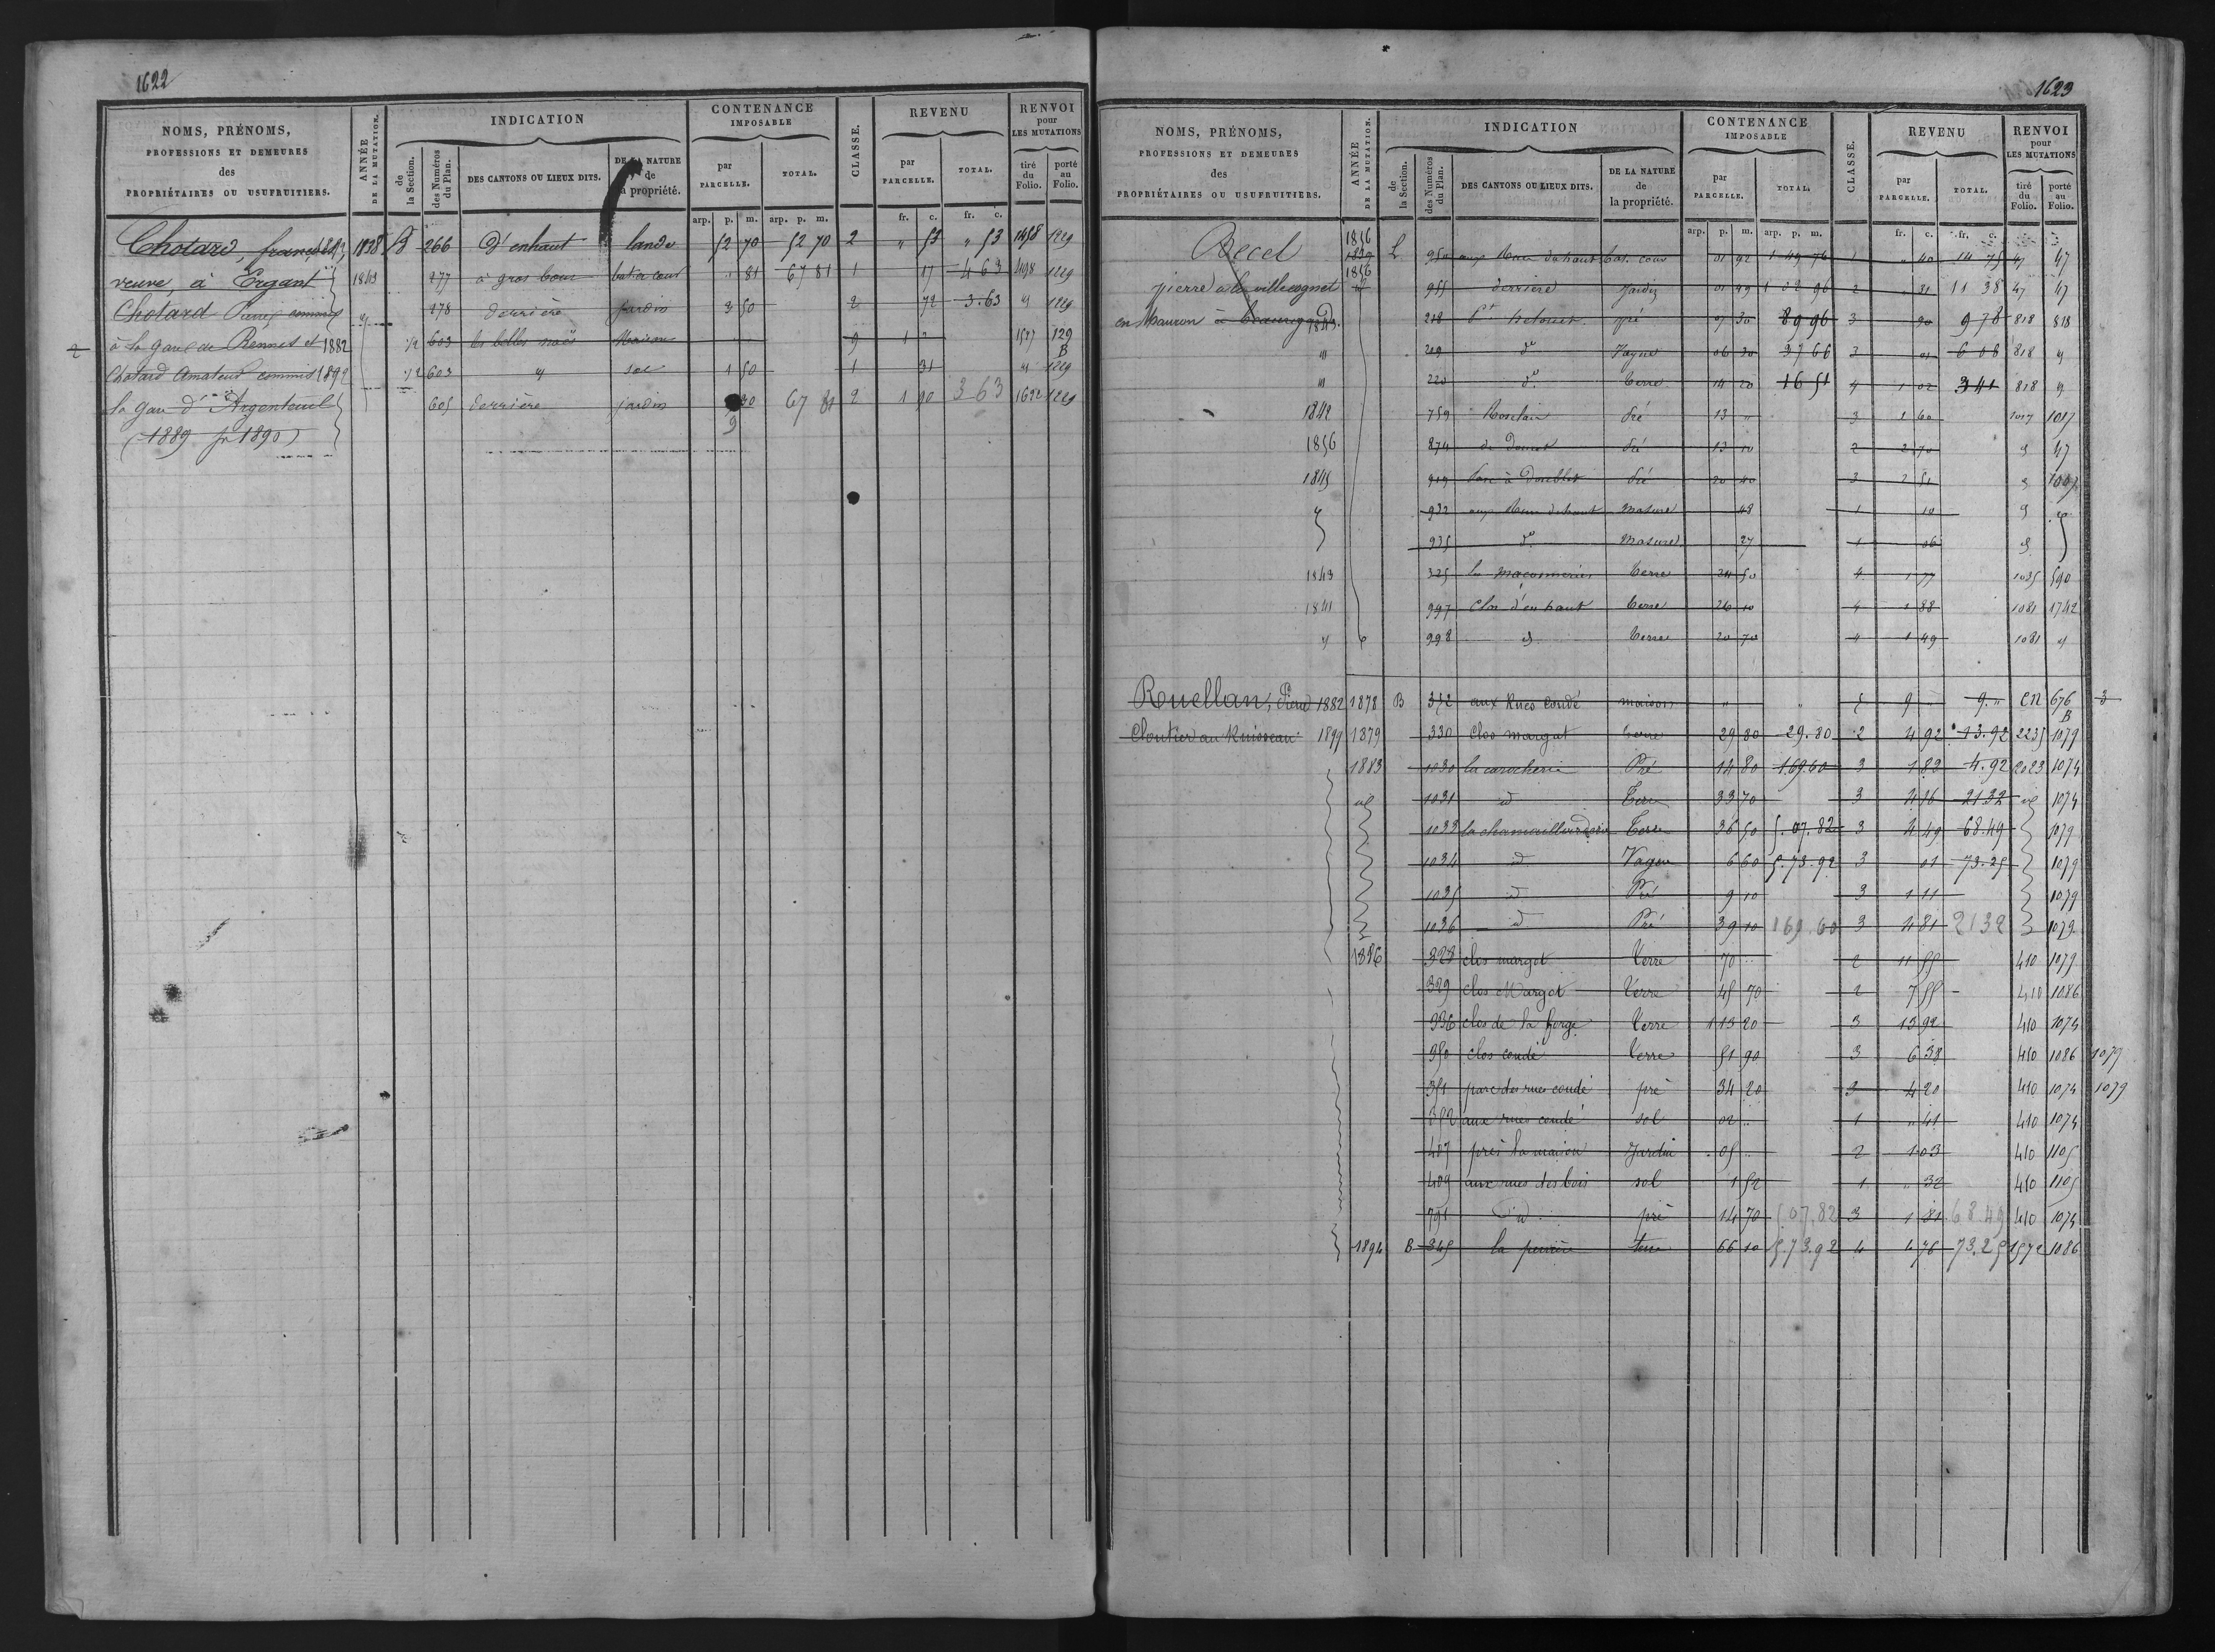 1622
NOMS, PRÉNOMS, PROFESSIONS ET DEMEURES des PROPRIÉTAIRES OU USUFRUITIERS.
ANNÉE DE LA MUTATION.
INDICATION
de la Section.
des Numéros du Plan.
DES CANTONS OU LIEUX DITS.
DE LA NATURE de la propriété.
CONTENANCE IMPOSABLE
par PARCELLE.
TOTAL.
CLASSE.
REVENU
par PARCELLE.
TOTAL.
RENVOI pour LES MUTATIONS
tiré du Folio.
porté au Folio.
arp. p. m. arp. p. m. fr. c. fr. c.
Chotard, 1838 B 266 D'enhaut lande 52 70 52 70 2 " 53 " 53 1458 1229
veuve, à Ergant 1843 277 à gros bour bat. et cour " 81 67 81 1 17 4 63 1498 1229
Chotard Pierre commis " 278 derrière jardin 3 50 2 72 3.63 " 1229
2 à la gare de Rennes et 1882 1/2 603 les belles noës Maison 9 1 " 1577 129 B
Chotard Amateur commis 1892 1/2 603 " sol 1 50 1 31 " 1229
la gare d'Argenteuil 605 derrière jardin 9 30 67 81 2 1 90 3 63 1622 1229
(1889 pr 1890)
1623
NOMS, PRÉNOMS, PROFESSIONS ET DEMEURES des PROPRIÉTAIRES OU USUFRUITIERS.
ANNÉE DE LA MUTATION.
INDICATION
de la Section.
des Numéros du Plan.
DES CANTONS OU LIEUX DITS.
DE LA NATURE de la propriété.
CONTENANCE IMPOSABLE
par PARCELLE.
TOTAL.
CLASSE.
REVENU
par PARCELLE.
TOTAL.
RENVOI pour LES MUTATIONS
tiré du Folio.
porté au Folio.
arp. p. m. arp. p. m. fr. c. fr. c.
Recel 1856 1839 L 950 bat. cour 01 92 1 49 76 1 " 40 14 75 47 47
pierre 1856 955 derrière Jardin 01 49 1 02 96 2 " 31 11 38 47 47
en Mauron 218 pré 7 30 89 96 3 90 9 78 818 818
" 219 do Vague 06 30 37 66 3 01 6 08 818 "
" 220 do terre 14 20 16 51 4 1 02 3 41 818 "
1842 759 Pré 13 " 3 1 60 1017 1017
1856 874 Pré 13 10 2 2 70 47
1845 919 Parc à Doublet Pré 20 40 3 2 51 1007
" 932 Masure 48 1 10
935 do Masure 27 1 06
1843 325 la Maconnerie terre 24 50 4 1 77 1035 590
1841 997 Clos d'en haut terre 26 10 4 1 88 1081 1742
" 998 terre 20 70 4 1 49 1081 "
Ruellan, Pierre 1882 1878 B 352 aux Rues Condé maison " " 5 9 " 9. " CN 676 B 3
Cloutier au Ruisseau 1899 1879 330 Clos margat terre 29 80 29.80 2 4 92 13.92 2235 1079
1883 1030 la carocherie Pré 14 80 1.69.60 3 1 82 4.92 2023 1074
id 1031 id Terre 33 70 3 4 16 21 32 id 1074
1033 Terre 36 50 5.07.82 3 4 49 68.49 1079
1034 id Vague 6 60 5.73.92 3 01 73.25 1079
1035 id Pré 9 10 3 1 11 1079
1036 id Pré 39 10 1 69 60 3 4 81 21 32 1079
1886 328 clos margot Terre 70 " 2 11 55 410 1079
329 clos Margot Terre 45 70 2 7 55 410 1086
336 clos de la forge Terre 1 13 20 3 13 92 410 1074
350 clos condé Terre 51 90 3 6 38 410 1086 1079
351 parc des rues condé pré 34 20 3 4 20 410 1074 1079
390 aux rues condé sol 02 " 1 " 41 410 1074
407 près la maison Jardin 05 " 2 1 03 410 1105
409 aux rues des bois sol 1 52 1 " 32 410 1105
791 id pré 14 70 5.07.82 3 1 81 68.49 410 1074
1894 B 345 terre 66 10 5.73.92 4 4 76 73.25 1572 1086